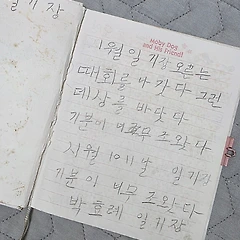 일기장
Moby Dog
and His Friends!
1월 일 기장 오른는
때회를 나갓다 그런
데 상을 바닷다
기분이 너무 조왓다
시월 10 11 날 일기장
기분이 너무 조왓다
박효례 일기장